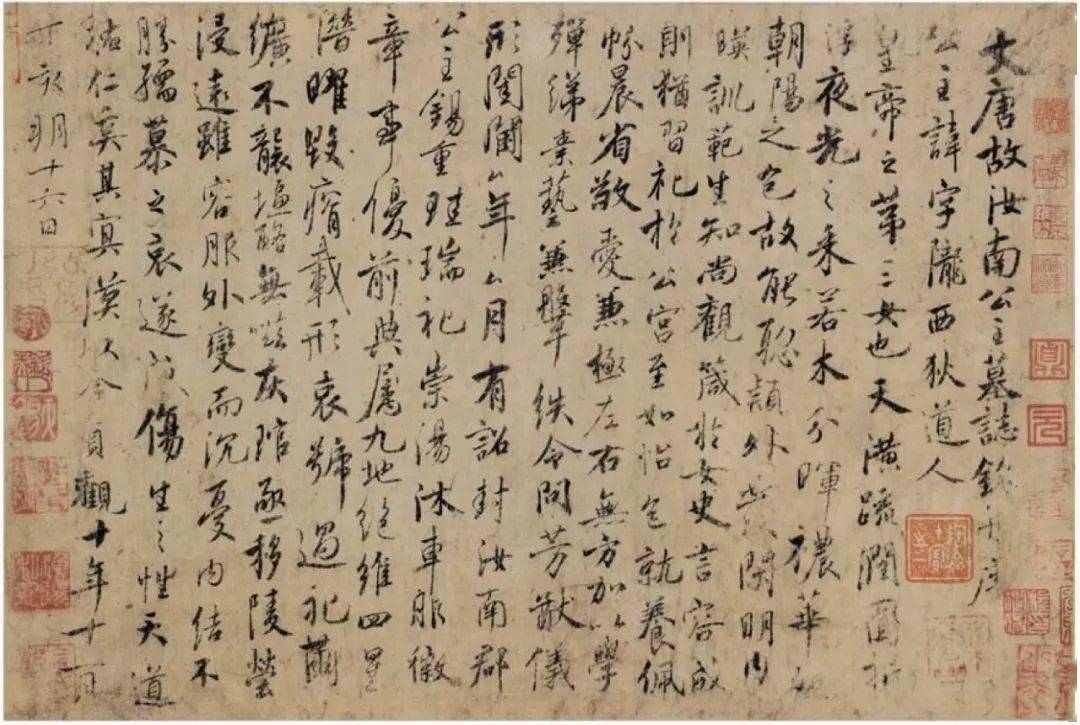 大唐故汝南公主墓誌銘并序
公主諱字隴西狄道人
皇帝之第三女也天潢疏潤圓折
浮夜光之采若木分暉穠華
朝陽之色故能聰穎外發閑明內
暎訓範生知尚觀箴於女史言容成
則猶習礼於公宮至如怡色就養佩
帉晨省敬愛兼極左右無方加以學
殫綈素藝兼鞶紩令問芳猷儀
形閨閫厶年厶月有詔封汝南郡
公主錫重珪瑞礼崇湯沐車服徽
章事優前典屬九地絕維四星
潛曜毀瘠載形哀號過礼繭
纊不襲塩酪無嗞灰琯亟移陵塋
浸遠雖容服外變而沉憂內結不
勝孺慕之哀遂成傷生之性天道
祐仁奚其冥漠以今貞觀十年十一月
丁亥朔十六日